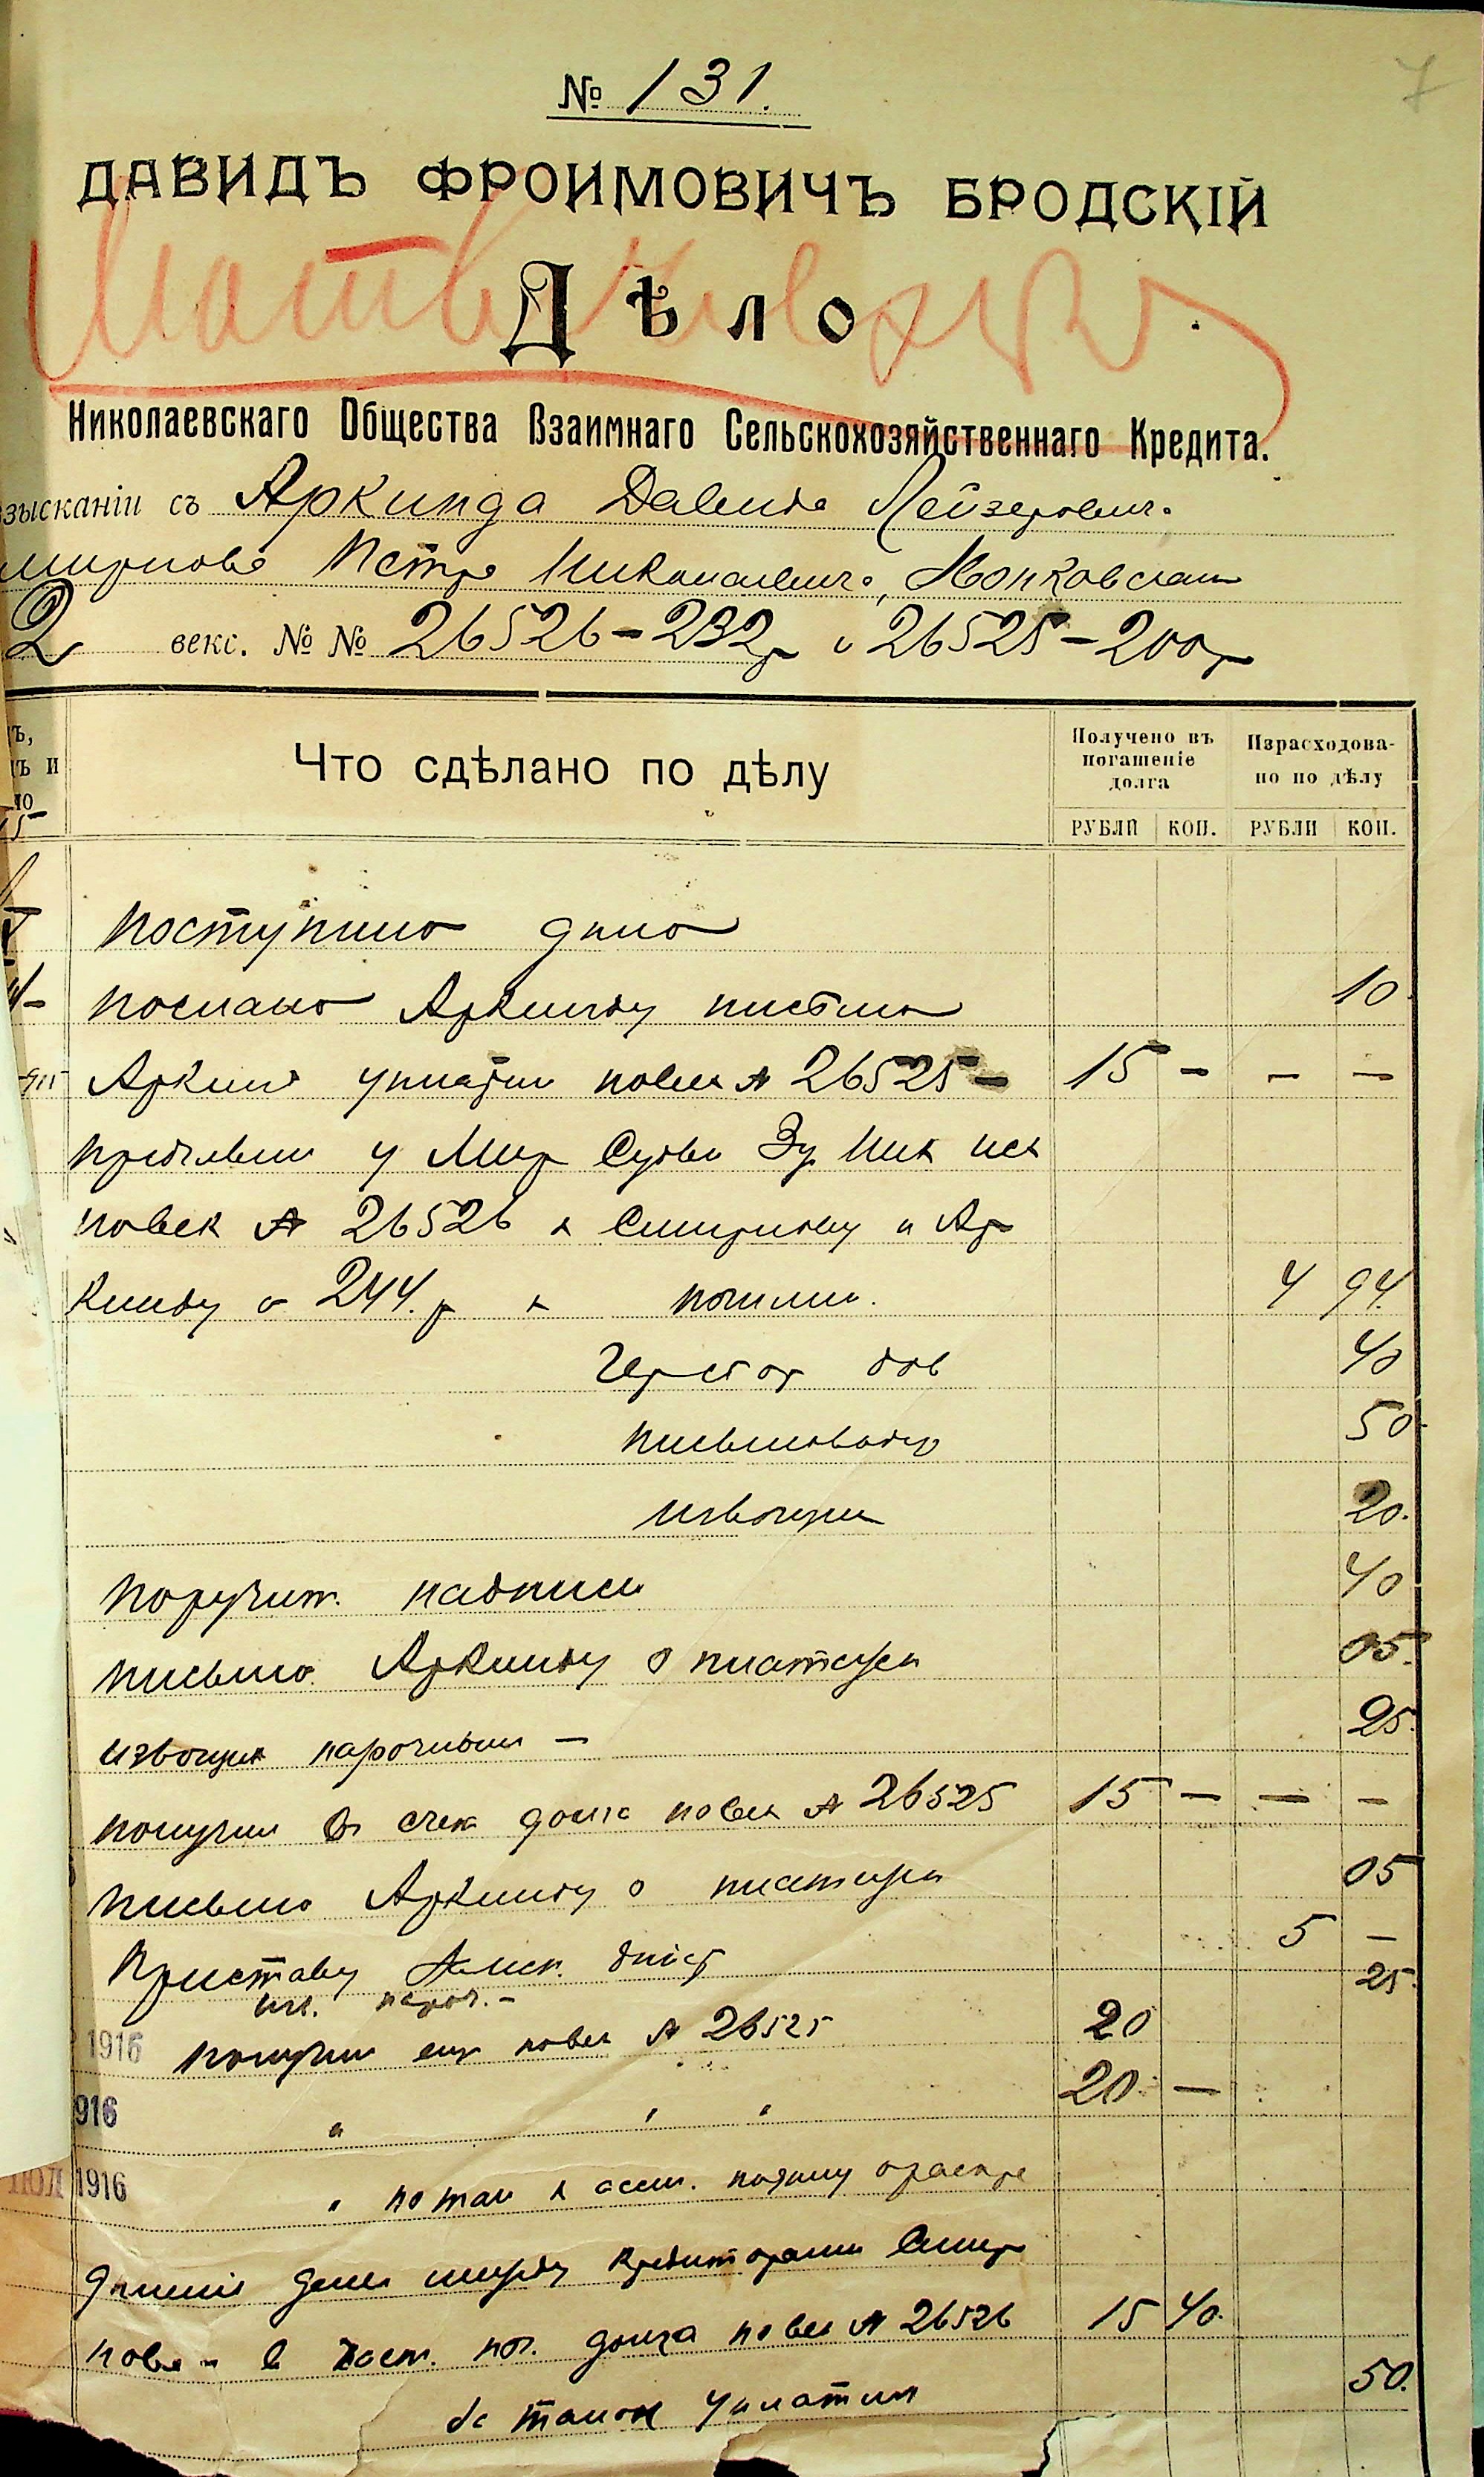 7
№ 131.
ДАВИДЪ ФРОИМОВИЧЪ БРОДСКІЙ
Дѣло
Николаевскаго Общества Взаимнаго Сельскохозяйственнаго Кредита.
зысканіи съ Аркинда Давида Лейзерович.
мирнова Петра Николаевича,
2 векс. №№ 26526-232р и 26525-200р
ъ,
ъ и
Что сдѣлано по дѣлу
Получено въ погашеніе долга
Израсходова-но по дѣлу
РУБЛИ КОП. РУБЛИ КОП.
Поступило дѣло
Послано Аркинду письмо 10
Аркинд уплатил по век № 26525 - 15 - - -
Предъявил у Мир Судьи Ник иск
по век № 26526 к Смирнову и Ар
кинду о 244.р к пошлин. 4 94.
Герб дов 40
письмовод 50
извощик 20.
поручит. надпись 40
письмо Аркинду о платеже 05.
извощик нарочным - 25.
получил в счет долга по век № 26525 15 - - -
письмо Аркинду о платеже 05
Приставу 5 -
нароч. - 25.
1916 получил еще по век № 26525 20
916 " " " 20 -
ІЮЛ 1916 " подачу о распре
дѣленіи денег между кредиторами Смир
нова - в част. пог. долга по век № 26526 15 40.
уплатил 50.